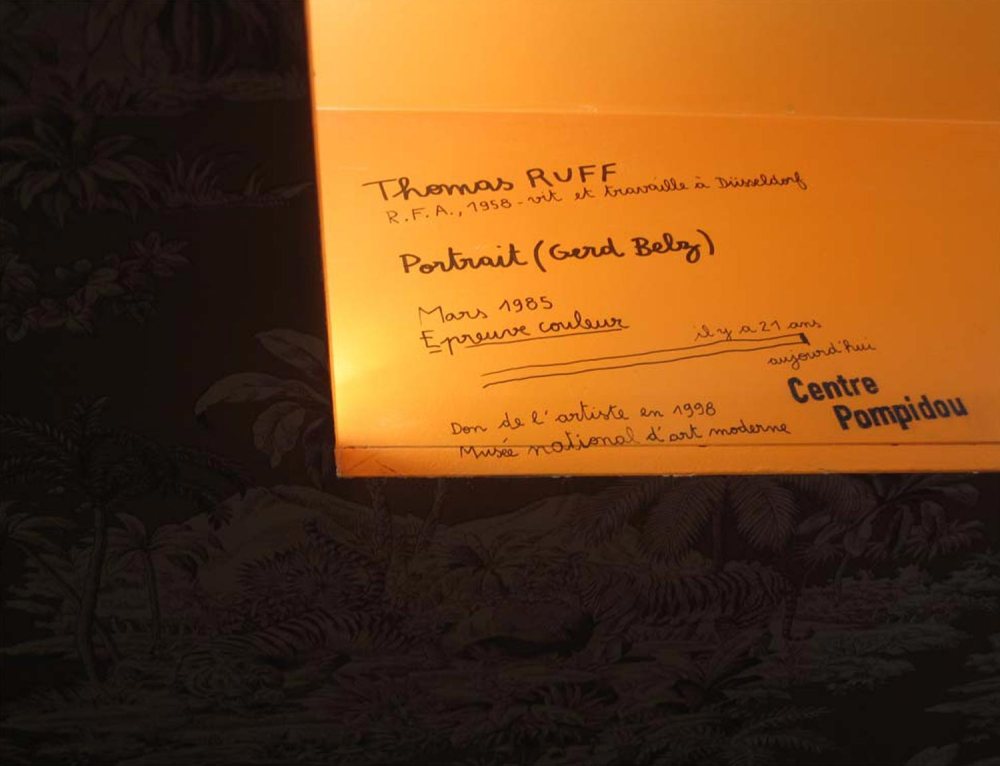 Thomas RUFF
R.F.A., 1958 - vit et travaille à Düsseldorf
Portrait (Gerd Belz)
Mars 1985
Epreuve couleur
il y a 21 ans
aujourd'hui
Centre
Pompidou
Don de l'artiste en 1998
Musée national d'art moderne